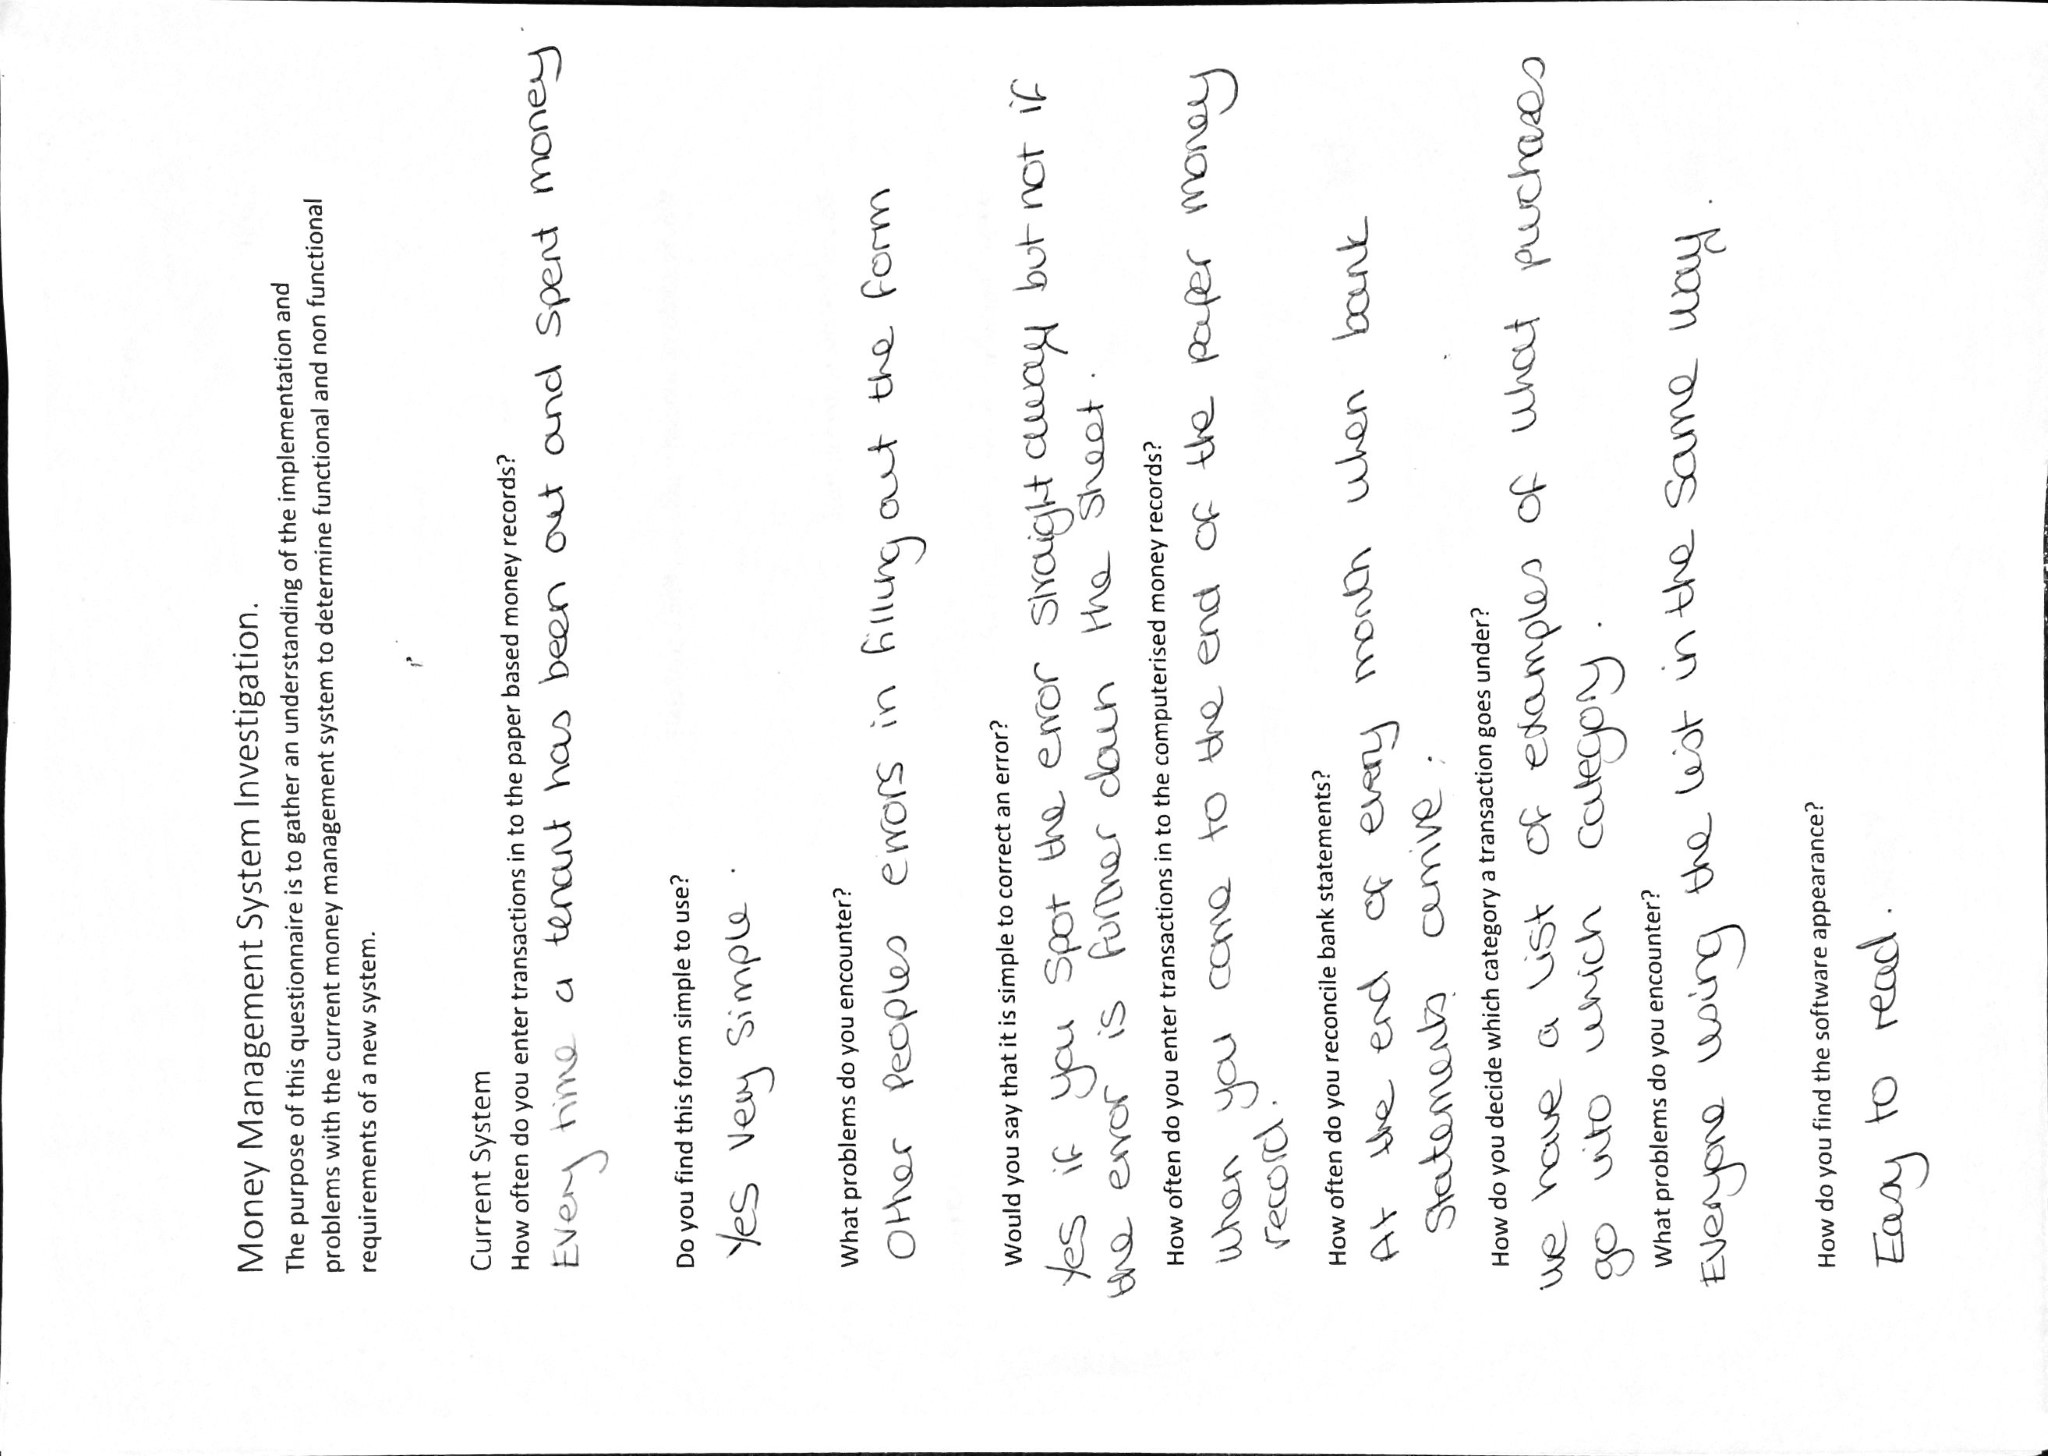 Money Management System Investigation.
The purpose of this questionnaire is to gather an understanding of the implementation and
problems with the current money management system to determine functional and non functional
requirements of a new system.
Current System
How often do you enter transactions in to the paper based money records?
Every time a tenant has been out and spent money
Do you find this form simple to use?
Yes very simple.
What problems do you encounter?
Other peoples errors in filling out the form
Would you say that it is simple to correct an error?
Yes if you spot the error straight away but not if
the error is further down the sheet.
How often do you enter transactions in to the computerised money records?
When you come to the end of the paper money
record.
How often do you reconcile bank statements?
At the end of every month when bank
statements arrive.
How do you decide which category a transaction goes under?
we have a list of examples of what purchases
go into which category.
What problems do you encounter?
Everyone using the list in the same way.
How do you find the software appearance?
Easy to read.